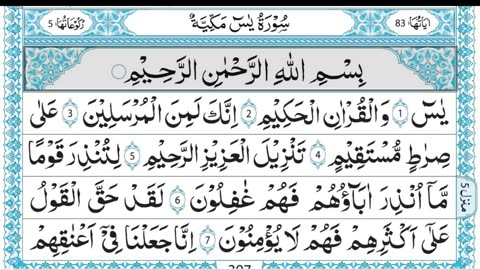 اٰیَاتُهَا 83 سُوْرَةُ یٰسٓ مَکِّیَّةٌ رُکُوْعَاتُهَا 5
بِسْمِ اللهِ الرَّحْمٰنِ الرَّحِیْمِ
یٰسٓ 1 وَالْقُرْاٰنِ الْحَکِیْمِ 2 اِنَّكَ لَمِنَ الْمُرْسَلِیْنَ 3 عَلٰی
صِرَاطٍ مُّسْتَقِیْمٍ 4 تَنْزِیْلَ الْعَزِیْزِ الرَّحِیْمِ 5 لِتُنْذِرَ قَوْمًا
مَّاۤ اُنْذِرَ اٰبَآؤُهُمْ فَهُمْ غٰفِلُوْنَ 6 لَقَدْ حَقَّ الْقَوْلُ
عَلٰۤی اَکْثَرِهِمْ فَهُمْ لَا یُؤْمِنُوْنَ 7 اِنَّا جَعَلْنَا فِیْۤ اَعْنَاقِهِمْ
منزل 5